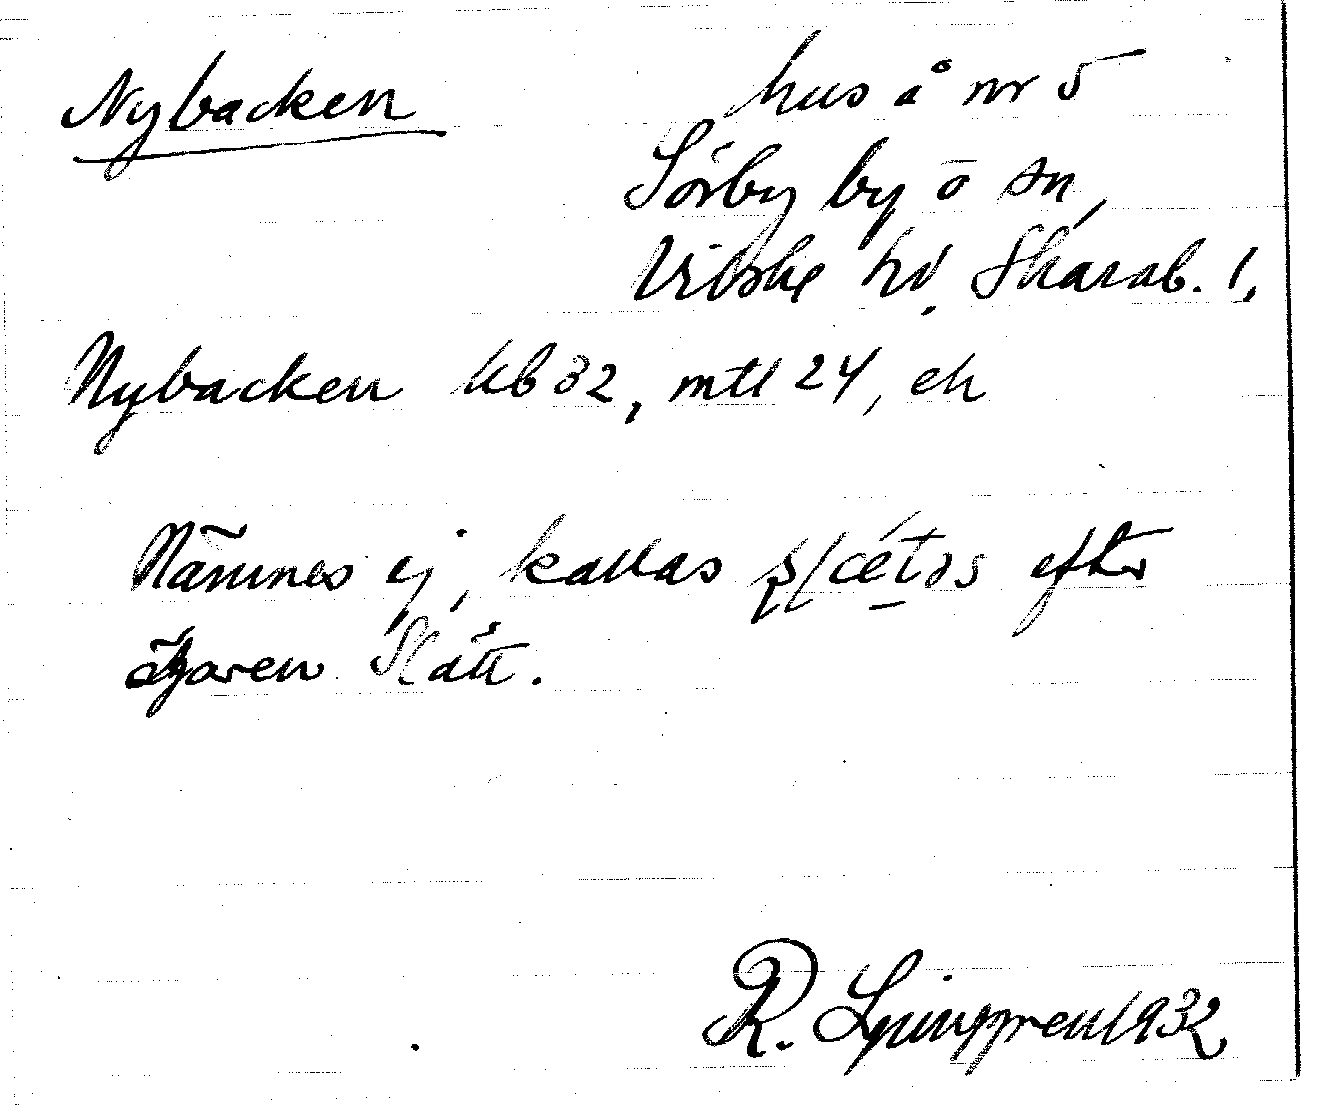 Nybacken
hus å nr 5
Sörby by o sn,
Vilske hd, Skarab. l,
Nybacken kb 32, mtl 24, ek
Nämnes ej, kallas efter
ägaren Slätt.
R. Ljunggren 1932